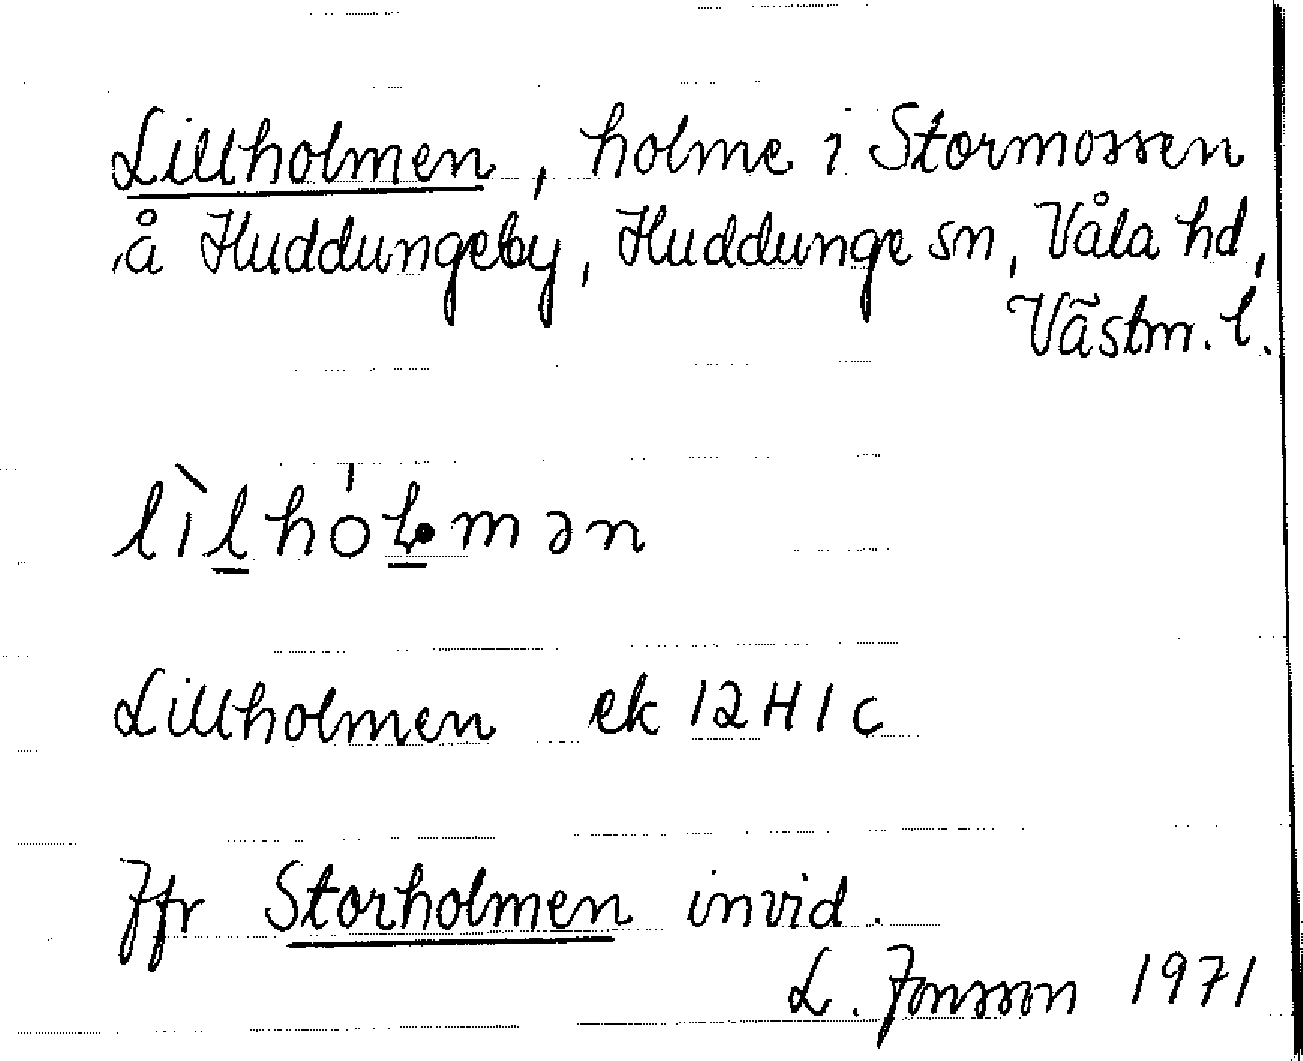 Lillholmen, holme i Stormossen
å Huddungeby, Huddunge sn, Våla hd,
Västm. l.
lìlhòłmən
Lillholmen ek 12H1c
Jfr Storholmen invid.
L. Jonsson 1971